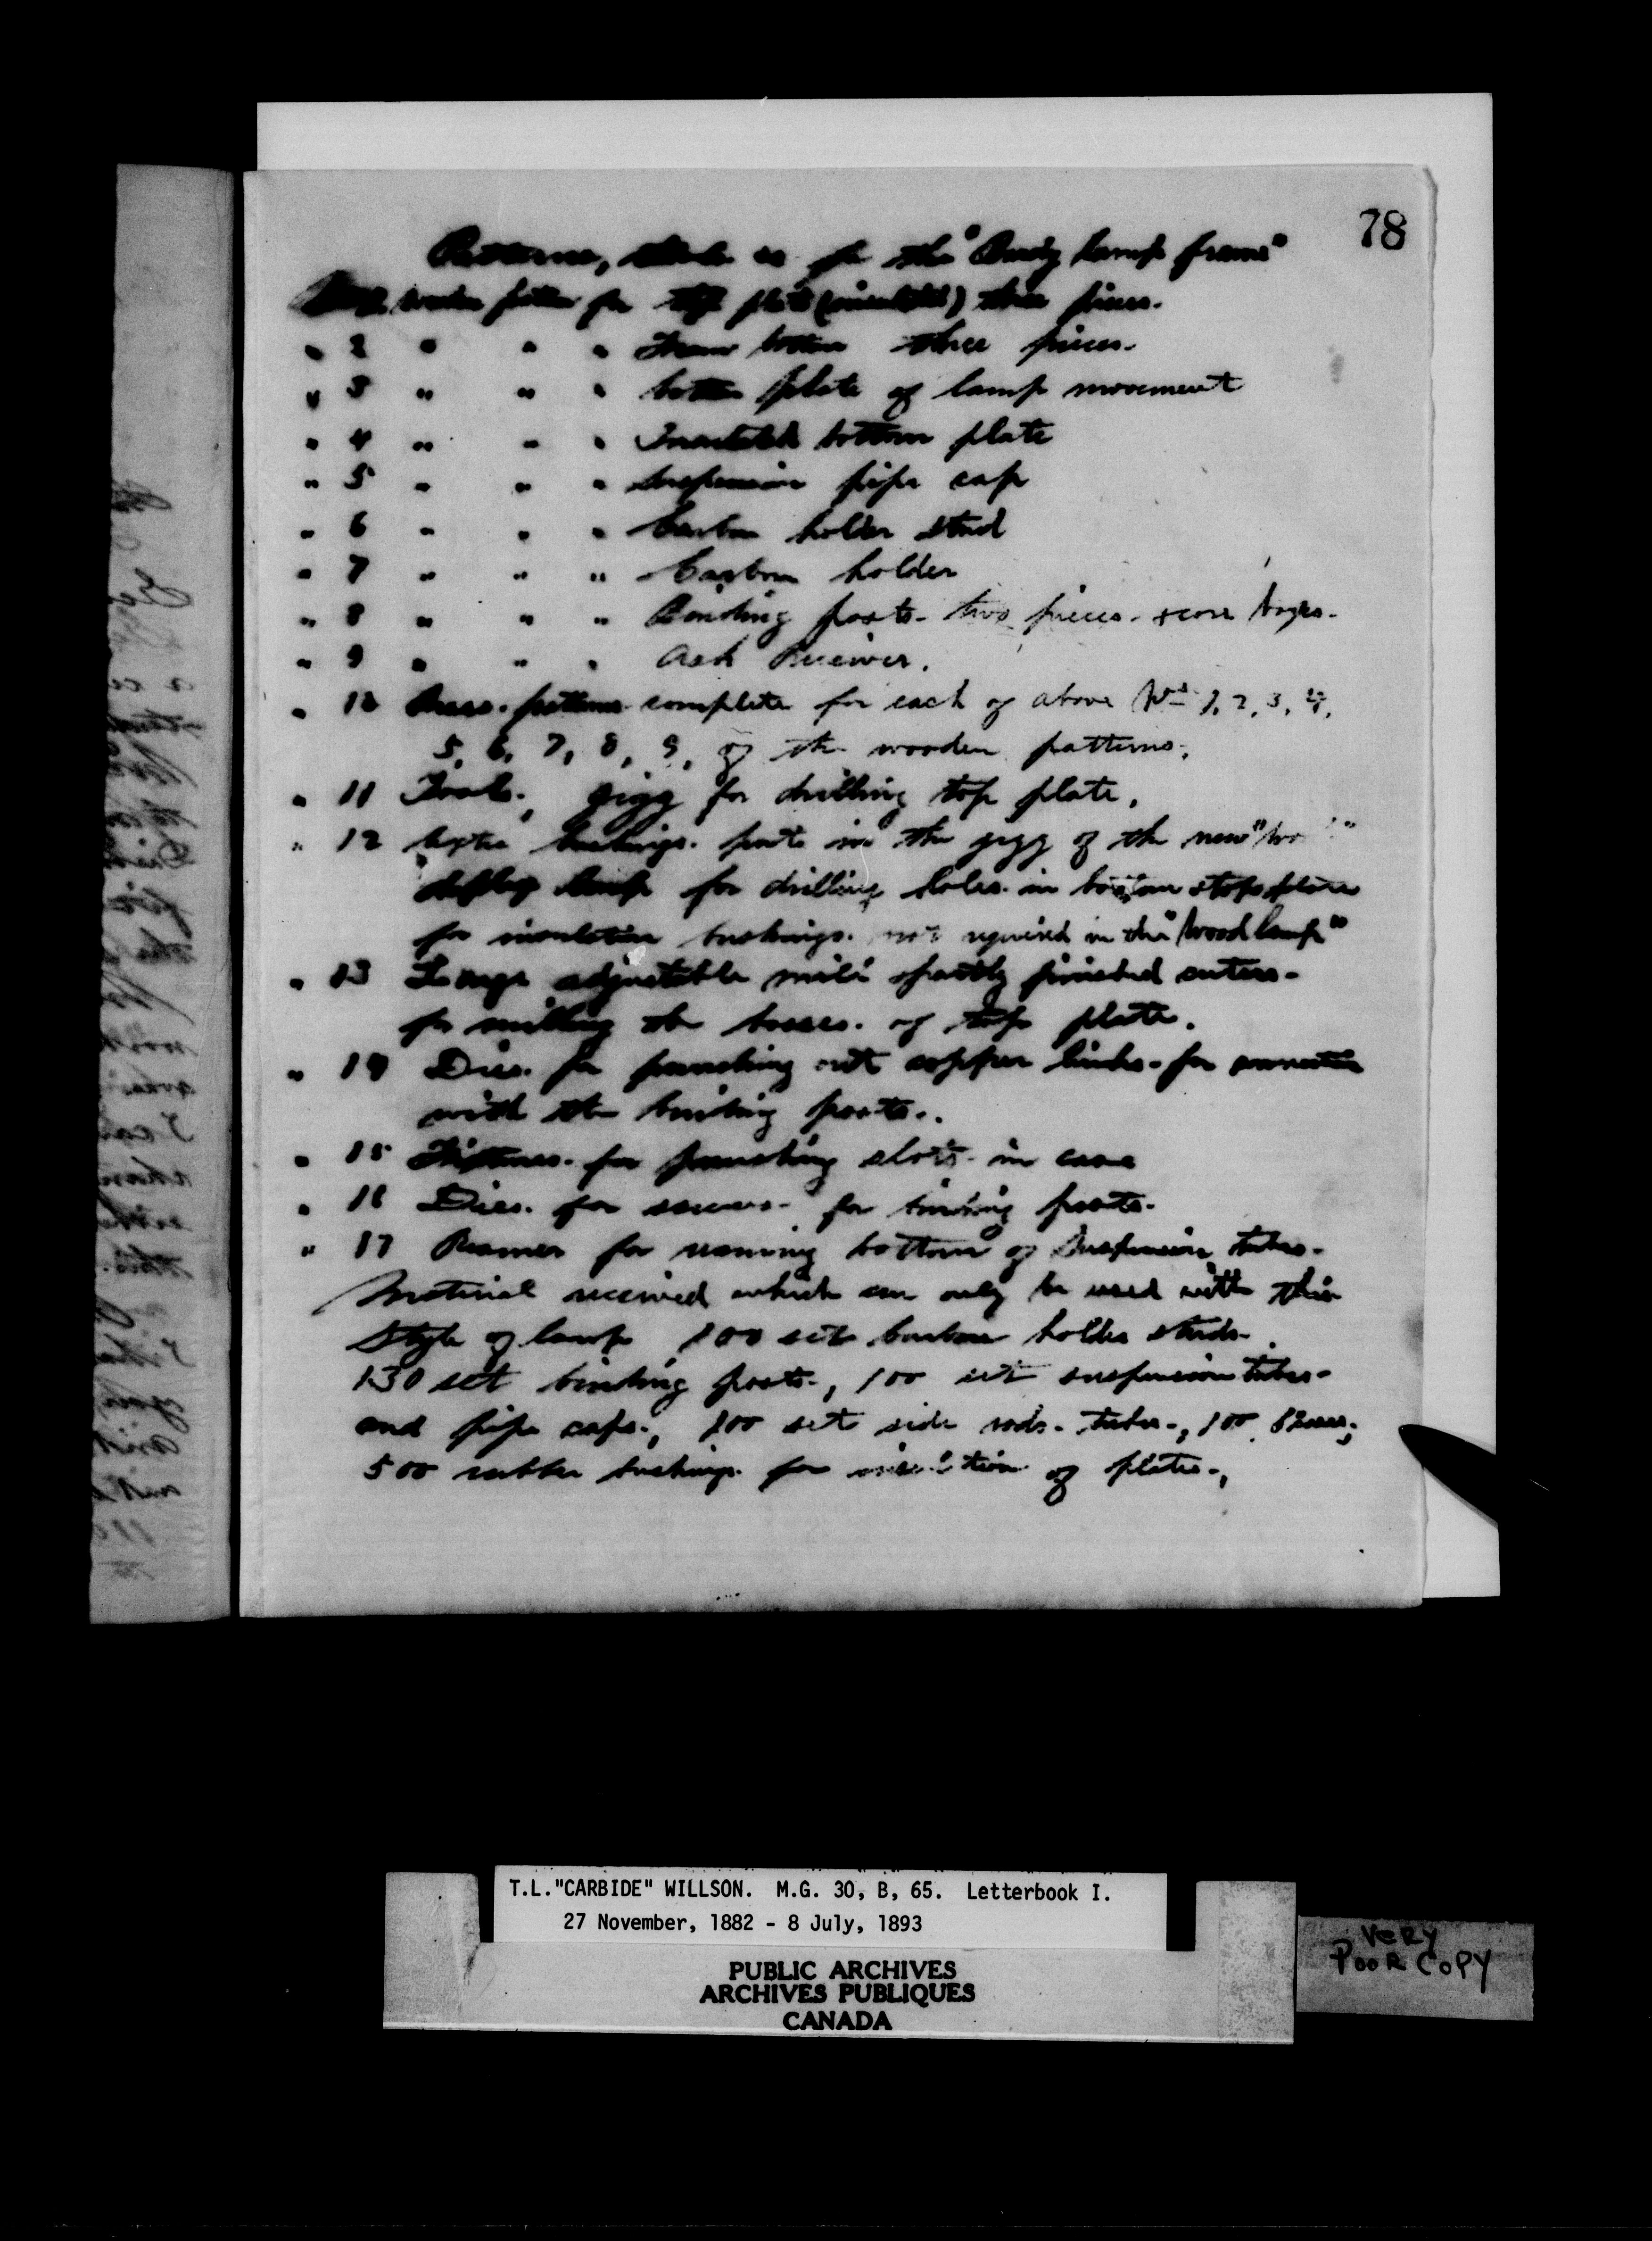 78
Patterns, tools &c for the "Purdy lamp frame"
wooden pattern for top plate (insulated) three pieces.
" 2 " " " Frame bottom three pieces.
" 3 " " " bottom plate of lamp movement
" 4 " " " Insulated bottom plate
" 5 " " " Suspension pipe cap
" 6 " " " Carbon holder stud
" 7 " " " Carbon holder
" 8 " " " Binding posts. two pieces. & core boxes.
" 9 " " " Ash Receiver.
" 10 Brass. patterns complete for each of above Nos 1, 2, 3, 4,
5, 6, 7, 8, 9, of the wooden patterns.
" 11 Tools., gigg for drilling top plate,
" 12 bushings. parts the gigg of the new "
lamp for drilling holes in plate
for insulation bushings. not required in the "Wood lamp"
" 13 Large adjustable mill partly finished cuters.
for milling the bosses. of top plate.
" 14 Dies. for punching out copper links. for connection
with the binding posts..
" 15 for punching slots. in case
" 16 Dies. for screws. for binding posts.
" 17 Reamer for reaming bottom of Suspension tubes.
Material received which can only be used with this
Style of lamp 100 set carbon holder studs.
130 set binding posts., 100 set suspension tubes.
and pipe caps., 100 set side rods. tubes., 100
500 rubber bushings for insulation of plates.,
T.L."CARBIDE" WILLSON. M.G. 30, B, 65. Letterbook I.
27 November, 1882 - 8 July, 1893
PUBLIC ARCHIVES
ARCHIVES PUBLIQUES
CANADA
VERY
POOR COPY